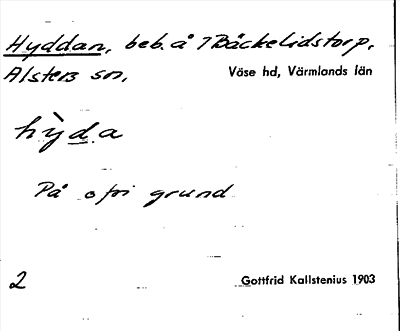 Hyddan, beb. å 7 Bäckelidstorp,
Alsters sn, Väse hd, Värmlands län
hỳda
På ofri grund
2 Gottfrid Kallstenius 1903